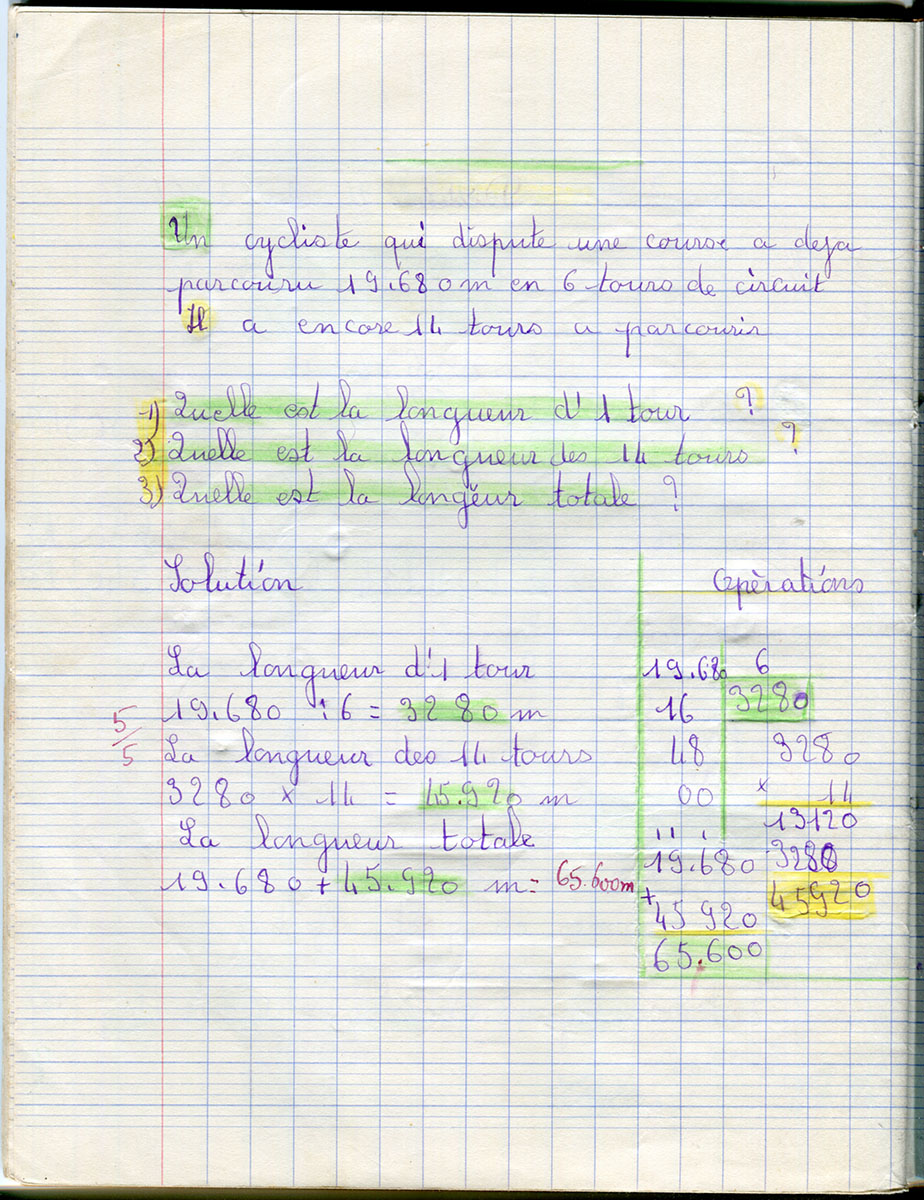 Un cycliste qui dispute une course a deja
parcouru 19.680 m en 6 tours de circuit
Il a encore 14 tours a parcourir
1) Quelle est la longueur d'1 tour ?
2) Quelle est la longueur des 14 tours ?
3) Quelle est la longeur totale ?
Solution
La longueur d'1 tour
19.680 : 6 = 3280 m
5/5
La longueur des 14 tours
3280 × 14 = 45.920 m
La longueur totale
19.680 + 45.920 m = 65.600m
Opèrations
19.680 6
16 3280
48
00
3280
× 14
13120
3280
45920
19.680
+
45920
65.600